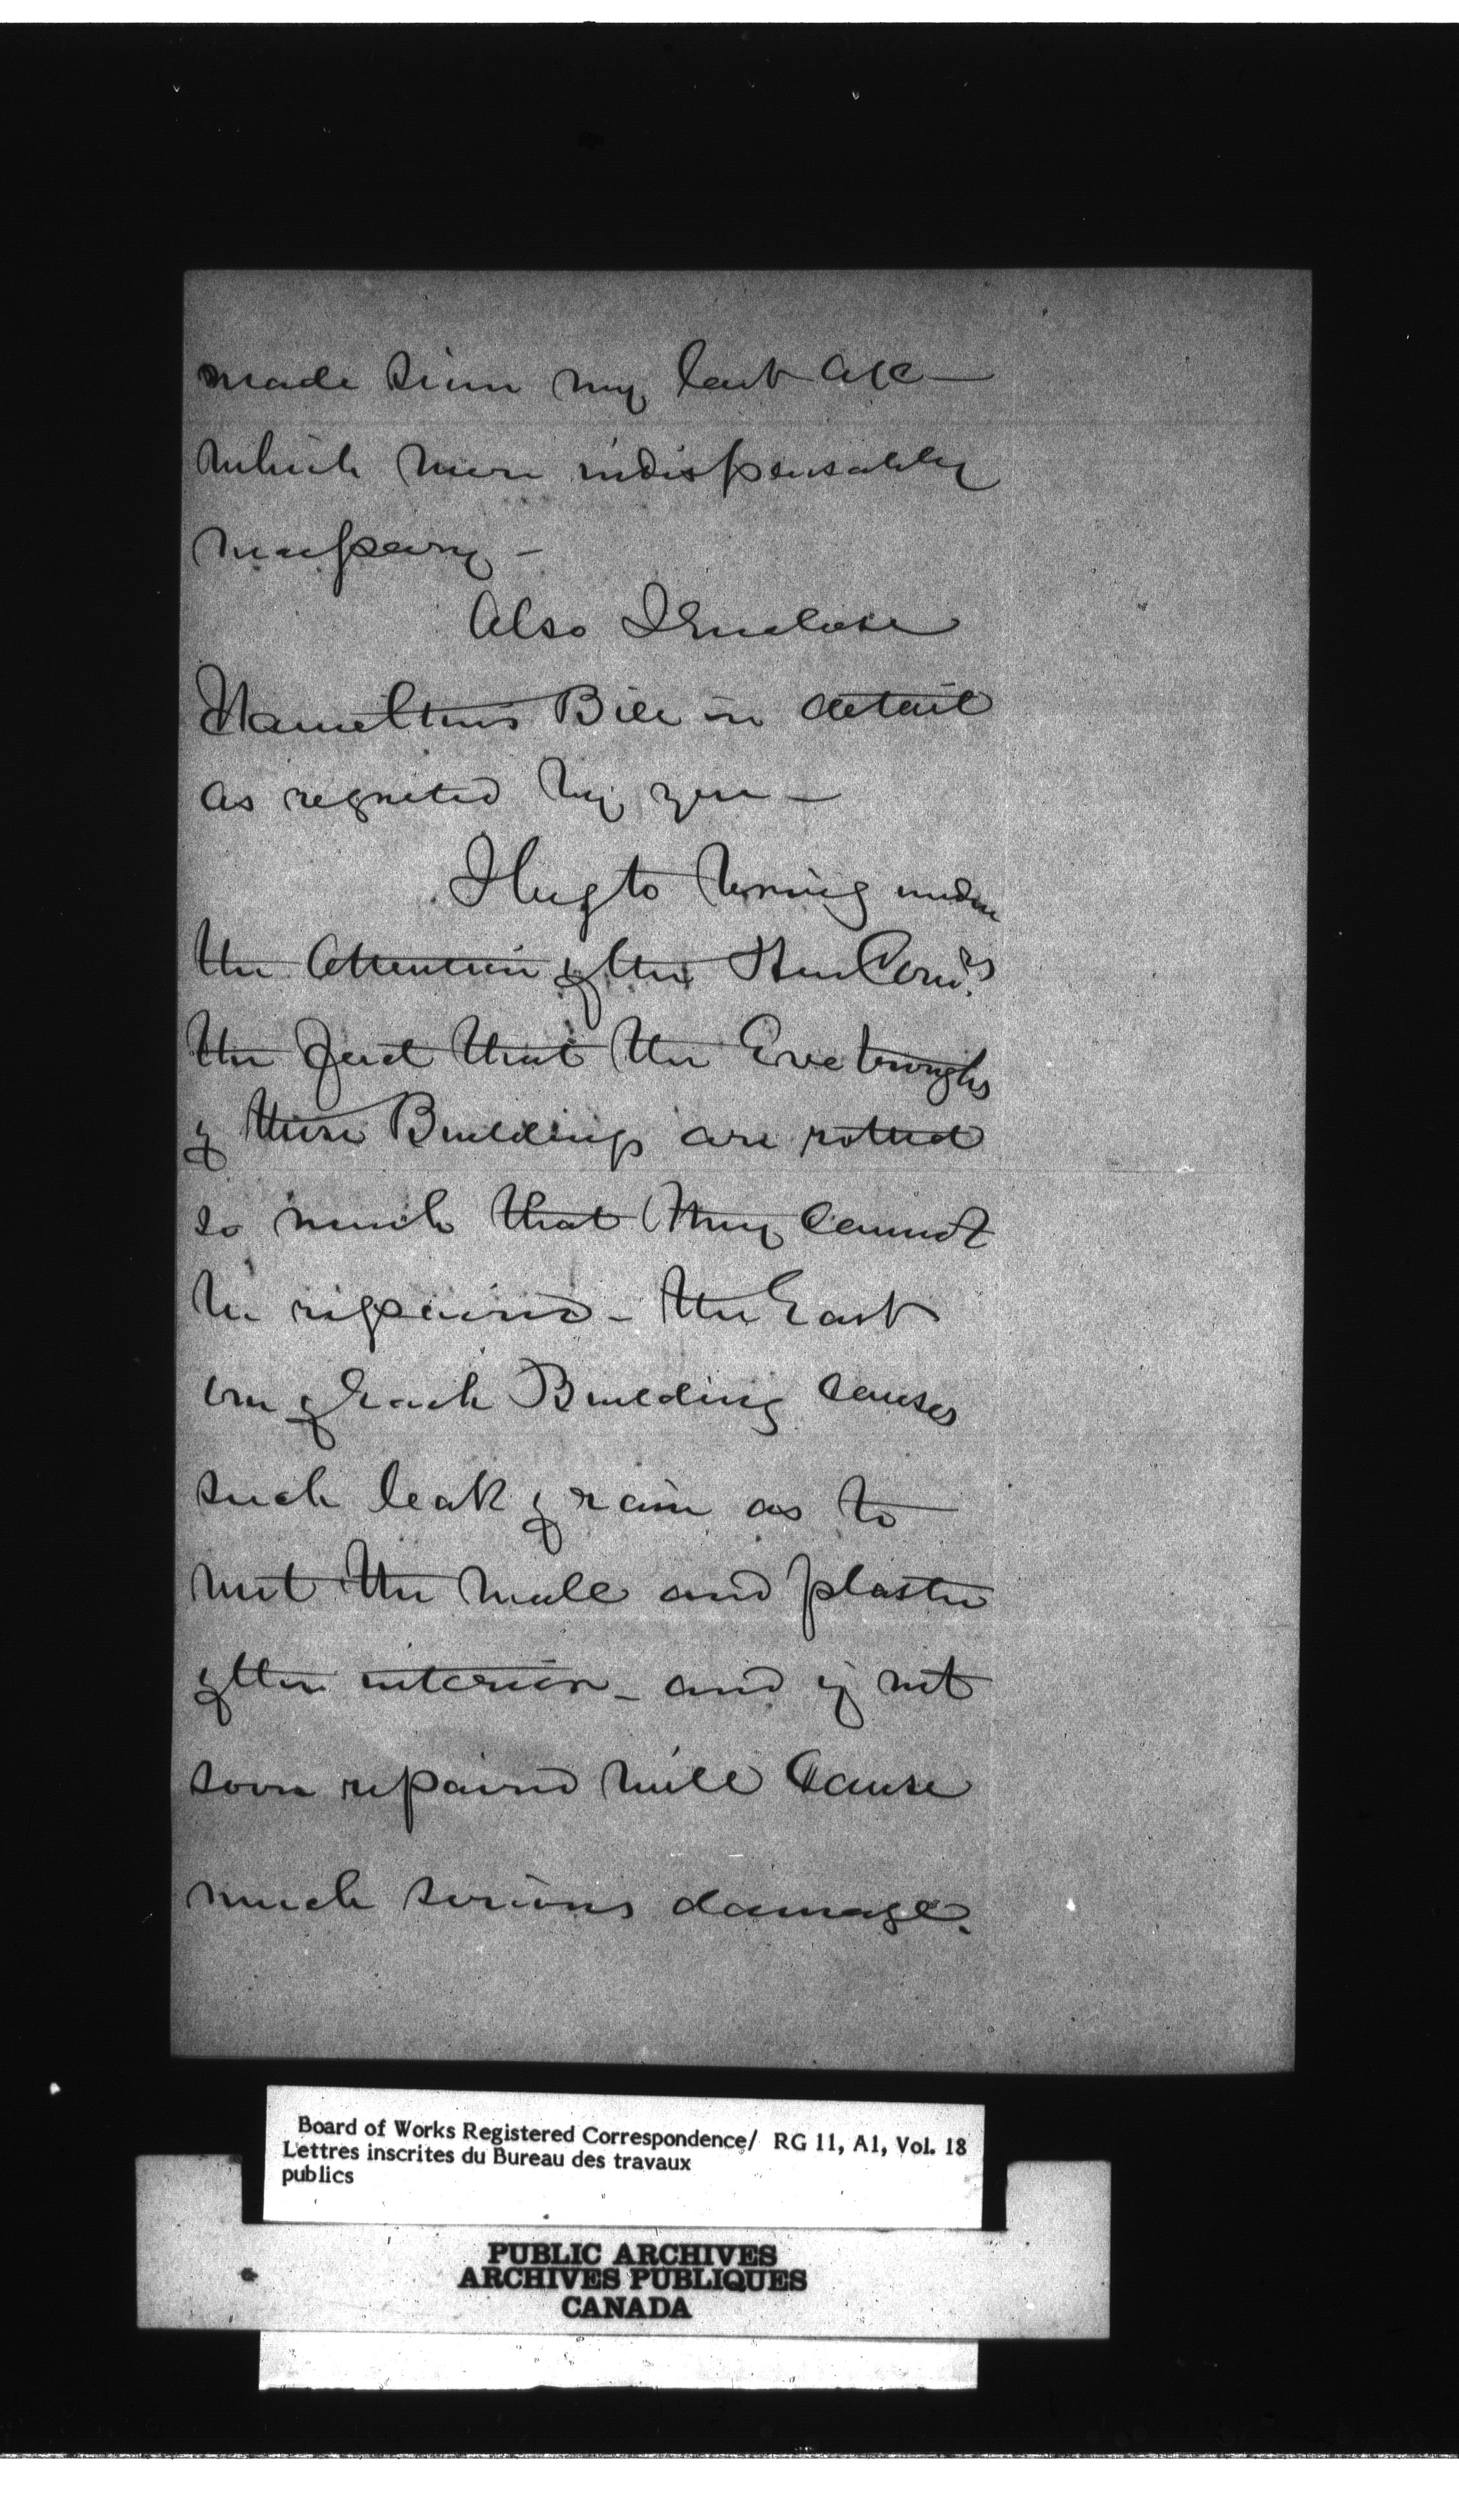 made since my last a/c —
which were indispensably
necessary —
Also I Enclose
Hamiltons Bill in detail
as requested by you —
I beg to bring under
the attention of the Hon Comrs
the fact that the Evetroughs
of these Buildings are rotted
so much that they cannot
be repaired — the East
one of Each Building causes
such leak of rain as to
wet the wall and plaster
of the interior — and if not
soon repaired will cause
much serious damage.
Board of Works Registered Correspondence/ RG 11, A1, Vol. 18
Lettres inscrites du Bureau des travaux
publics
PUBLIC ARCHIVES
ARCHIVES PUBLIQUES
CANADA